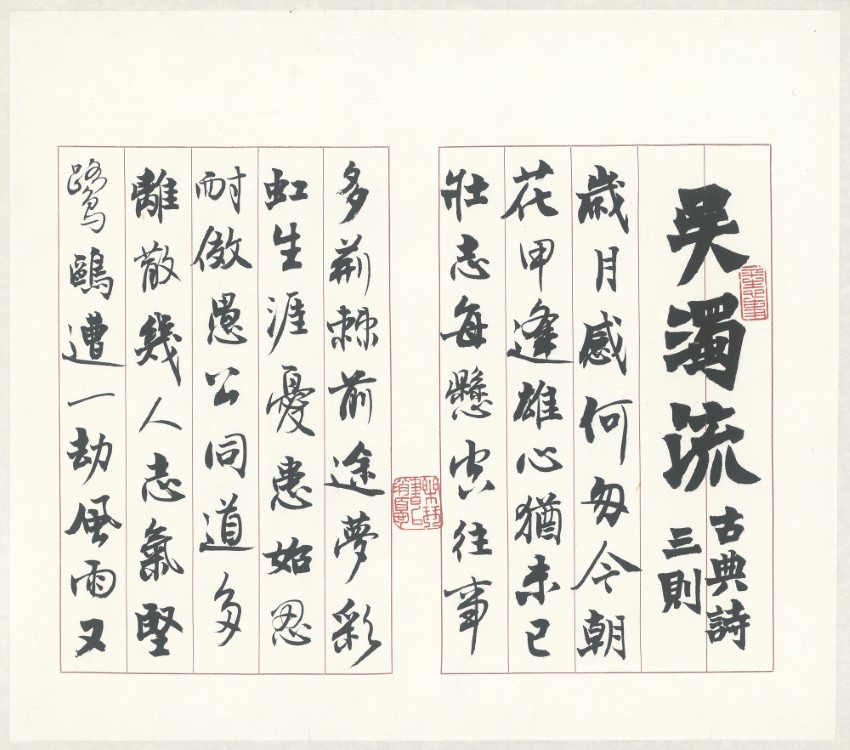 吳濁流
古典詩
三則
歲月感何匆今朝
花甲逢雄心猶未已
壯志每懸空往事
多荊棘前途夢彩
虹生涯憂患始忍
耐傚愚公同道多
離散幾人志氣堅
鷺鷗遭一劫風雨又